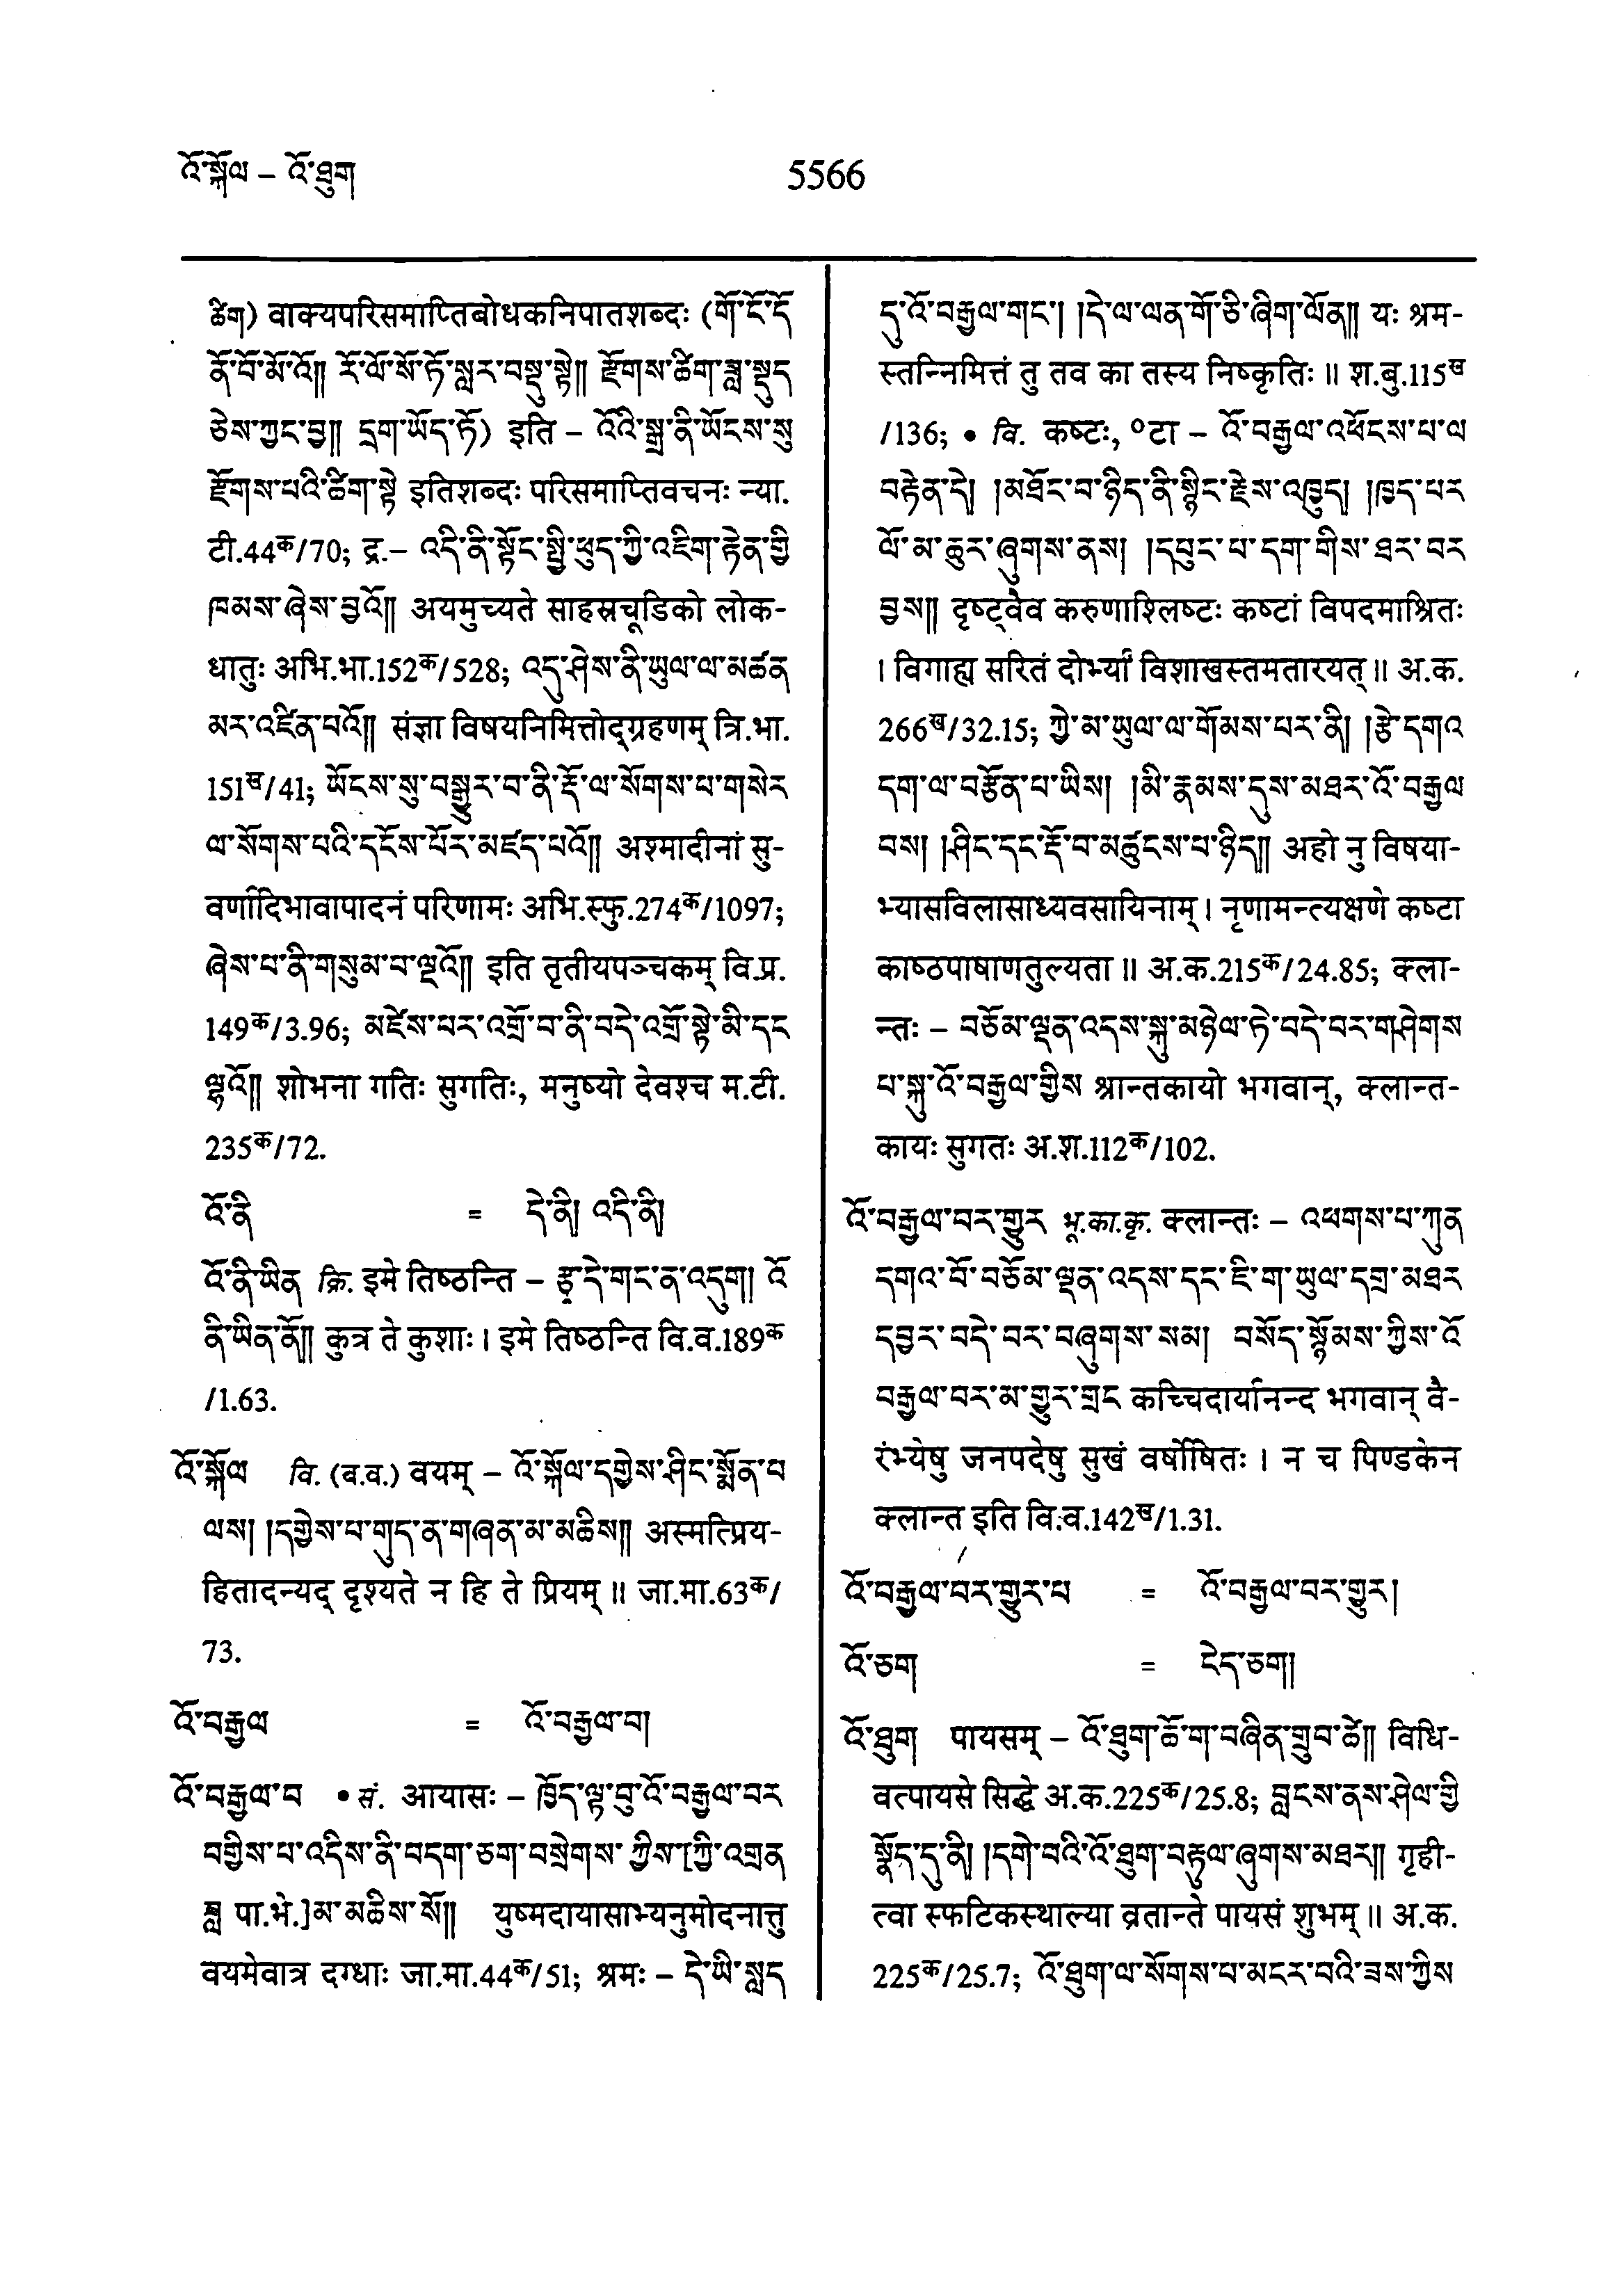 འོ་སྐོལ – འོ་ཐུག
5566
ཚིག) वाक्यपरिसमाप्तिबोधकनिपातशब्दः (གོ་ངོ་དོ
ནོ་བོ་མོ་འོ།། རོ་ལོ་སོ་ཏོ་སླར་བསྡུ་སྟེ།། རྫོགས་ཚིག་ཟླ་སྡུད
ཅེས་ཀྱང་བྱ།། དྲག་ཡོད་ཏོ) इति – འོའི་སྒྲ་ནི་ཡོངས་སུ
རྫོགས་པའི་ཚིག་སྟེ इतिशब्दः परिसमाप्तिवचनः न्या.
टी.44क/70; द्र.– འདི་ནི་སྟོང་སྤྱི་ཕུད་ཀྱི་འཇིག་རྟེན་གྱི
ཁམས་ཞེས་བྱའོ།། अयमुच्यते साहस्रचूडिको लोक-
धातुः अभि.भा.152क/528; འདུ་ཤེས་ནི་ཡུལ་ལ་མཚན
མར་འཛིན་པའོ།། संज्ञा विषयनिमित्तोद्ग्रहणम् त्रि.भा.
151ख/41; ཡོངས་སུ་བསྒྱུར་བ་ནི་རྡོ་ལ་སོགས་པ་གསེར
ལ་སོགས་པའི་དངོས་པོར་མཛད་པའོ།། अश्मादीनां सु-
वर्णादिभावापादनं परिणामः अभि.स्फु.274क/1097;
ཞེས་པ་ནི་གསུམ་པ་ལྔའོ།། इति तृतीयपञ्चकम् वि.प्र.
149क/3.96; མཛེས་པར་འགྲོ་བ་ནི་བདེ་འགྲོ་སྟེ་མི་དང
ལྷའོ།། शोभना गतिः सुगतिः, मनुष्यो देवश्च म.टी.
235क/72.
འོ་ནི = དེ་ནི། འདི་ནི།
འོ་ནི་ཡིན क्रि. इमे तिष्ठन्ति – རྩྭ་དེ་གང་ན་འདུག། འོ
ནི་ཡིན་ནོ།། कुत्र ते कुशाः । इमे तिष्ठन्ति वि.व.189क
/1.63.
འོ་སྐོལ वि. (ब.व.) वयम् – འོ་སྐོལ་དགྱེས་ཤིང་སྨོན་པ
ལས། །དགྱེས་པ་གུད་ན་གཞན་མ་མཆིས།། अस्मत्प्रिय-
हितादन्यद् दृश्यते न हि ते प्रियम् ॥ जा.मा.63क/
73.
འོ་བརྒྱལ = འོ་བརྒྱལ་བ།
འོ་བརྒྱལ་བ • सं. आयासः – ཁྱོད་ལྟ་བུ་འོ་བརྒྱལ་བར
བགྱིས་པ་འདིས་ནི་བདག་ཅག་བསྲེགས་ཀྱིས[ཀྱི་འགྲན
ཟླ पा.भे.]མ་མཆིས་སོ།། युष्मदायासाभ्यनुमोदनात्तु
वयमेवात्र दग्धाः जा.मा.44क/51; श्रमः – དེ་ཡི་སླད
དུ་འོ་བརྒྱལ་གང་། །དེ་ལ་ལན་གོ་ཅི་ཞིག་ལོན།། यः श्रम-
स्तन्निमित्तं तु तव का तस्य निष्कृतिः ॥ श.बु.115ख
/136; • वि. कष्टः, ०टा – འོ་བརྒྱལ་འཕོངས་པ་ལ
བརྟེན་དེ། །མཐོང་བ་ཉིད་ནི་སྙིང་རྗེས་འཁྱུད། །ཁྱད་པར
ལོ་མ་ཆུར་ཞུགས་ནས། །དཔུང་པ་དག་གིས་ཐར་བར
བྱས།། दृष्ट्वैव करुणाश्लिष्टः कष्टां विपदमाश्रितः
। विगाह्य सरितं दोर्भ्यां विशाखस्तमतारयत् ॥ अ.क.
266ख/32.15; ཀྱེ་མ་ཡུལ་ལ་གོམས་པར་ནི། །རྩེ་དགའ
དག་ལ་བརྩོན་པ་ཡིས། །མི་རྣམས་དུས་མཐར་འོ་བརྒྱལ
བས། །ཤིང་དང་རྡོ་བ་མཚུངས་པ་ཉིད།། अहो नु विषया-
भ्यासविलासाध्यवसायिनाम् । नृणामन्त्यक्षणे कष्टा
काष्ठपाषाणतुल्यता ॥ अ.क.215क/24.85; क्ला-
न्तः – བཅོམ་ལྡན་འདས་སྐུ་མཉེལ་ཏེ་བདེ་བར་གཤེགས
པ་སྐུ་འོ་བརྒྱལ་གྱིས श्रान्तकायो भगवान्, क्लान्त-
कायः सुगतः अ.श.112क/102.
འོ་བརྒྱལ་བར་གྱུར भू.का.कृ. क्लान्तः – འཕགས་པ་ཀུན
དགའ་བོ་བཅོམ་ལྡན་འདས་དང་ཇི་ག་ཡུལ་དགྲ་མཐར
དབྱར་བདེ་བར་བཞུགས་སམ། བསོད་སྙོམས་ཀྱིས་འོ
བརྒྱལ་བར་མ་གྱུར་གྲང कच्चिदार्यानन्द भगवान् वै-
रंभ्येषु जनपदेषु सुखं वर्षोषितः । न च पिण्डकेन
क्लान्त इति वि.व.142ख/1.31.
འོ་བརྒྱལ་བར་གྱུར་པ = འོ་བརྒྱལ་བར་གྱུར།
འོ་ཅག = ངེད་ཅག།
འོ་ཐུག पायसम् – འོ་ཐུག་ཆོ་ག་བཞིན་གྲུབ་ཚེ།། विधि-
वत्पायसे सिद्धे अ.क.225क/25.8; བླངས་ནས་ཤེལ་གྱི
སྣོད་དུ་ནི། །དགེ་བའི་འོ་ཐུག་བརྟུལ་ཞུགས་མཐར།། गृही-
त्वा स्फटिकस्थाल्या व्रतान्ते पायसं शुभम् ॥ अ.क.
225क/25.7; འོ་ཐུག་ལ་སོགས་པ་མངར་བའི་ཟས་ཀྱིས